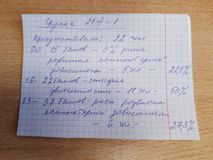 Группа 217-1
Присутствовали: 22 чел
До 15 балов - 0% риска
развития компьютерной
зависимости - 5 чел - 22,7%
16-22 балов - стадия
увлеченности - 11 чел - 50%
23-37 балов риск развития
компьютерной зависимости
- 6 чел - 27,3%